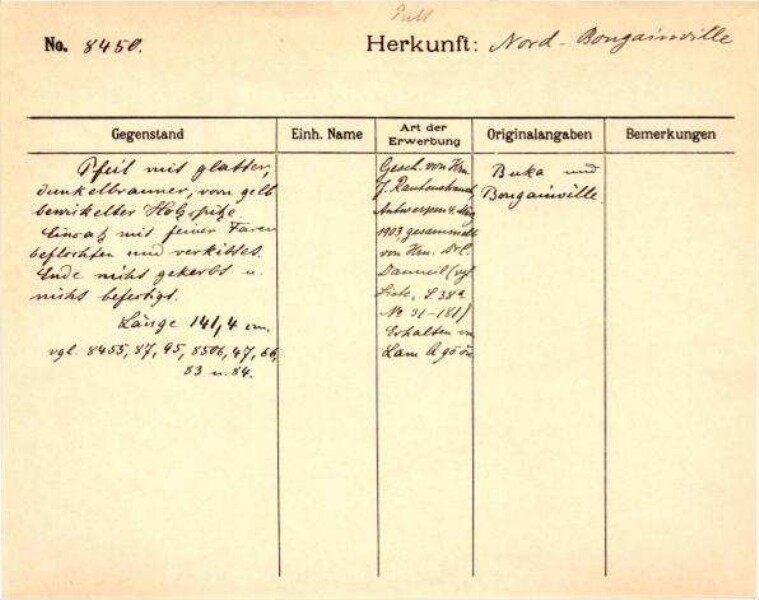 No. 8450.
Herkunft: Nord-Bougainville
Gegenstand
Einh. Name
Art der Erwerbung
Originalangaben
Bemerkungen
Pfeil mit glatter,
dunkelbrauner, vorn gelb
bewickelter Holzspitze.
Einsatz mit feiner Faser
beflochten und verkittet.
Ende nicht gekerbt u.
nicht befestigt.
Länge 141,4 cm.
vgl. 8455, 87, 95, 8506, 47, 66,
83 u. 84.
Gesch. von Hrn.
J. Rautenstrauch,
Antwerpen 4. Aug
1903 gesammelt
von Hrn. Dr C.
Danneil (vgl.
Liste, S. 38a
No 31-181)
Erhalten
Buka und
Bougainville.